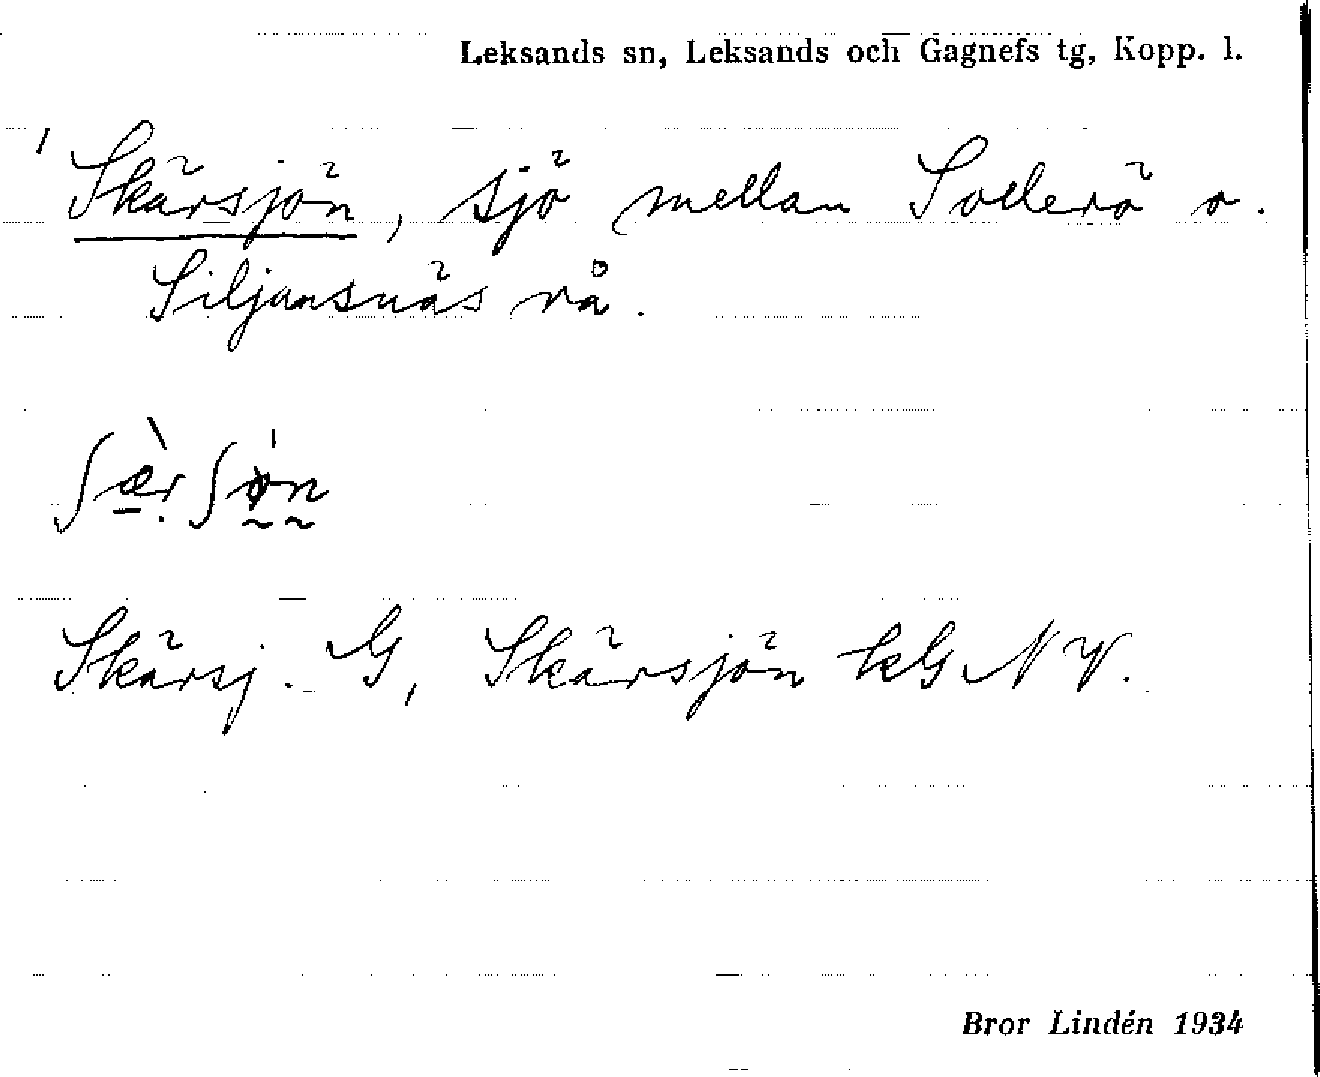 Leksands sn, Leksands och Gagnefs tg, Kopp. l.
Skärsjön, sjö mellan Sollerö o.
Siljansnäs rå.
ʃæ̀rʃøn
Skärsj. G, Skärsjön kG NV.
Bror Lindén 1934